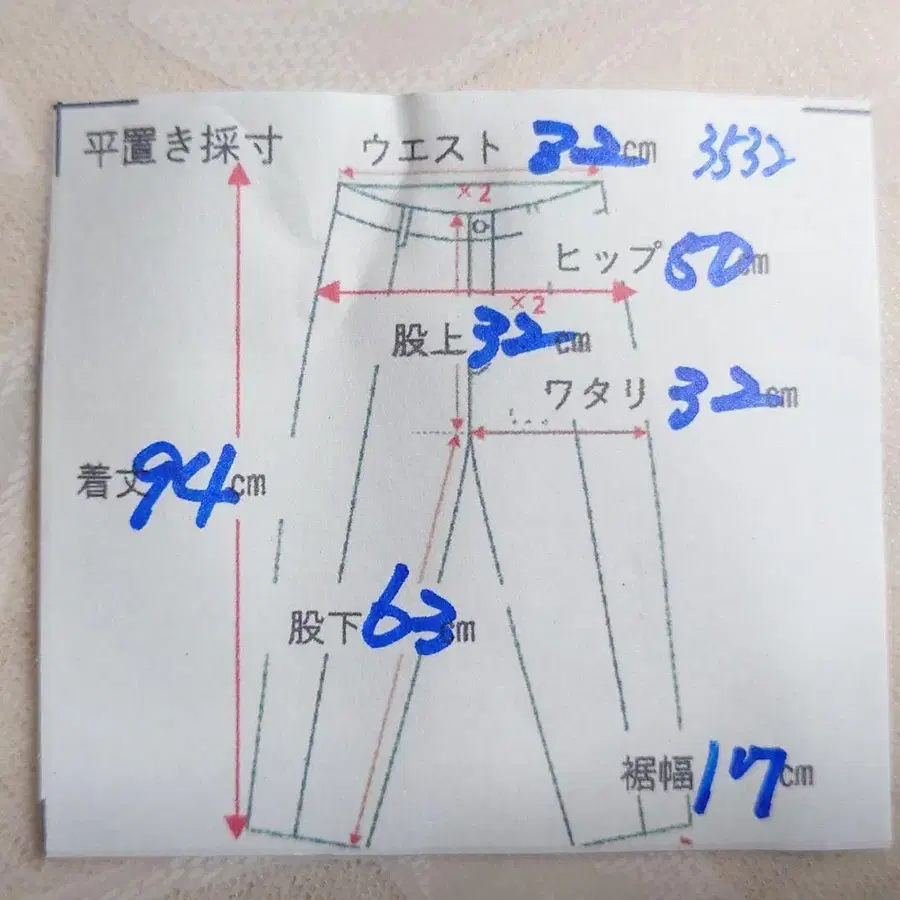 平置き採寸
ウエスト 32cm
3532
×2
ヒップ50cm
×2
股上32cm
ワタリ 32cm
着丈94cm
股下63cm
裾幅17cm